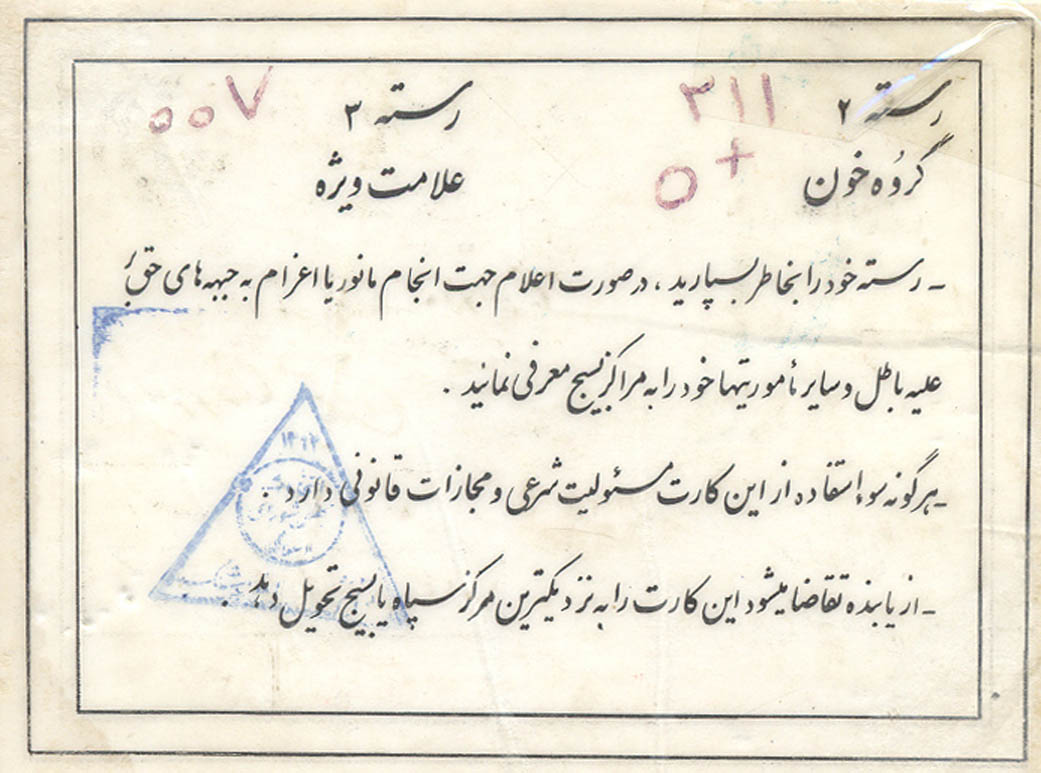 رسته ۲ ۳۱۱ رسته ۳ ۰۰۷
گروه خون O+ علامت ویژه
- رسته خود را بخاطر بسپارید ، در صورت اعلام جهت انجام مانور یا اعزام به جبهه های حق بر
علیه باطل و سایر مأموریتها خود را به مراکز بسیج معرفی نمائید .
- هرگونه سوء استفاده از این کارت مسئولیت شرعی و مجازات قانونی دارد .
۱۳۶۲
- از یابنده تقاضا میشود این کارت را به نزدیکترین مرکز سپاه یا بسیج تحویل دهد .